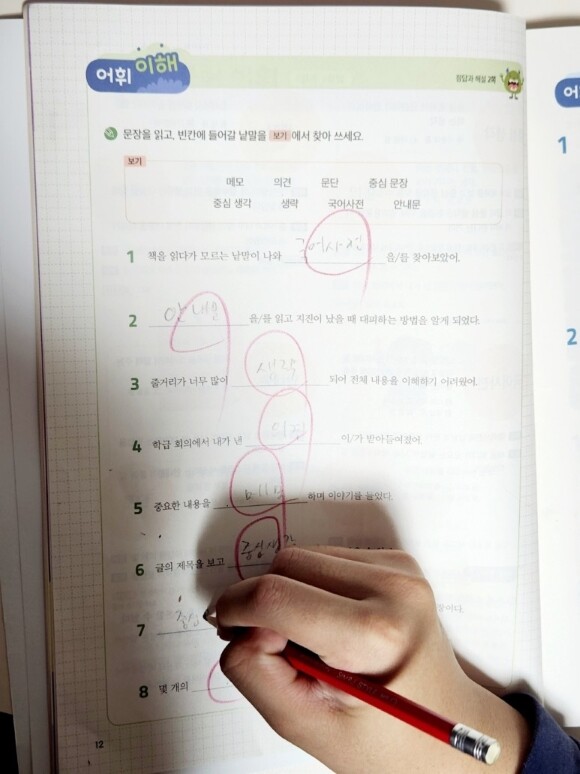 어휘 이해
정답과 해설 2쪽
문장을 읽고, 빈칸에 들어갈 낱말을 보기 에서 찾아 쓰세요.
보기
메모 의견 문단 중심 문장
중심 생각 생략 국어사전 안내문
1 책을 읽다가 모르는 낱말이 나와 국어사전 을/를 찾아보았어.
2 안내문 을/를 읽고 지진이 났을 때 대피하는 방법을 알게 되었다.
3 줄거리가 너무 많이 생략 되어 전체 내용을 이해하기 어려웠어.
4 학급 회의에서 내가 낸 의견 이/가 받아들여졌어.
5 중요한 내용을 메모 하며 이야기를 들었다.
6 글의 제목을 보고 중심생각
7 중심
8 몇 개의
12
어
1
2